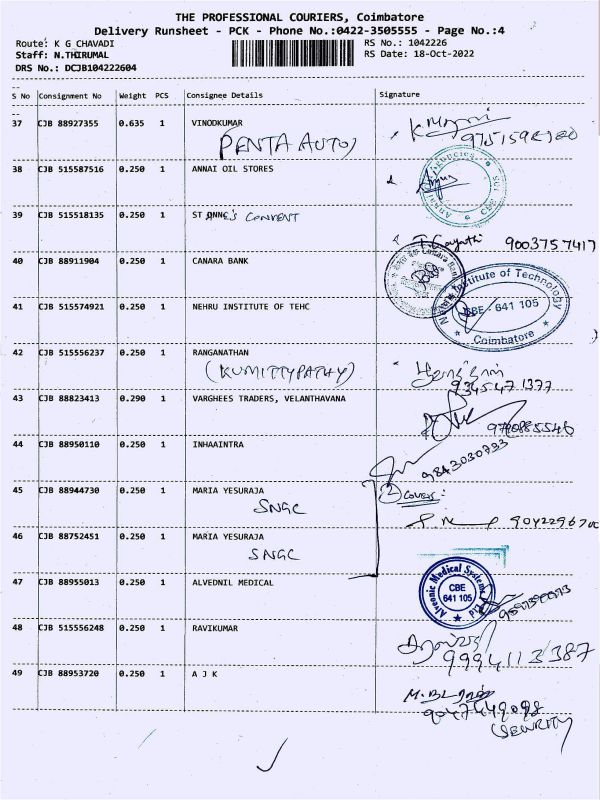 THE PROFESSIONAL COURIERS, Coimbatore
Delivery Runsheet - PCK - Phone No.:0422-3505555 - Page No.:4
Route: K G CHAVADI
RS No.: 1042226
Staff: N.THIRUMAL
RS Date: 18-Oct-2022
DRS No.: DCJB104222604
S No Consignment No Weight PCS Consignee Details Signature
37 CJB 88927355 0.635 1 VINODKUMAR
PENTA AUTO)
38 CJB 515587516 0.250 1 ANNAI OIL STORES
39 CJB 515518135 0.250 1 ST ANNE'S CONVENT
9003757417
40 CJB 88911904 0.250 1 CANARA BANK
Canara Bank
41 CJB 515574921 0.250 1 NEHRU INSTITUTE OF TEHC
Nehru Institute of Technology
CBE - 641 105
Coimbatore
42 CJB 515556237 0.250 1 RANGANATHAN
(KUMITTYPATHY)
9345471377
43 CJB 88823413 0.290 1 VARGHEES TRADERS, VELANTHAVANA
44 CJB 88950110 0.250 1 INHAAINTRA
9843030733
45 CJB 88944730 0.250 1 MARIA YESURAJA
SNGC
2 Covers:
46 CJB 88752451 0.250 1 MARIA YESURAJA
SNGC
47 CJB 88955013 0.250 1 ALVEDNIL MEDICAL
Alveonic Medical Systems
CBE
641 105
48 CJB 515556248 0.250 1 RAVIKUMAR
9994113387
49 CJB 88953720 0.250 1 A J K
9047549098
SECURITY